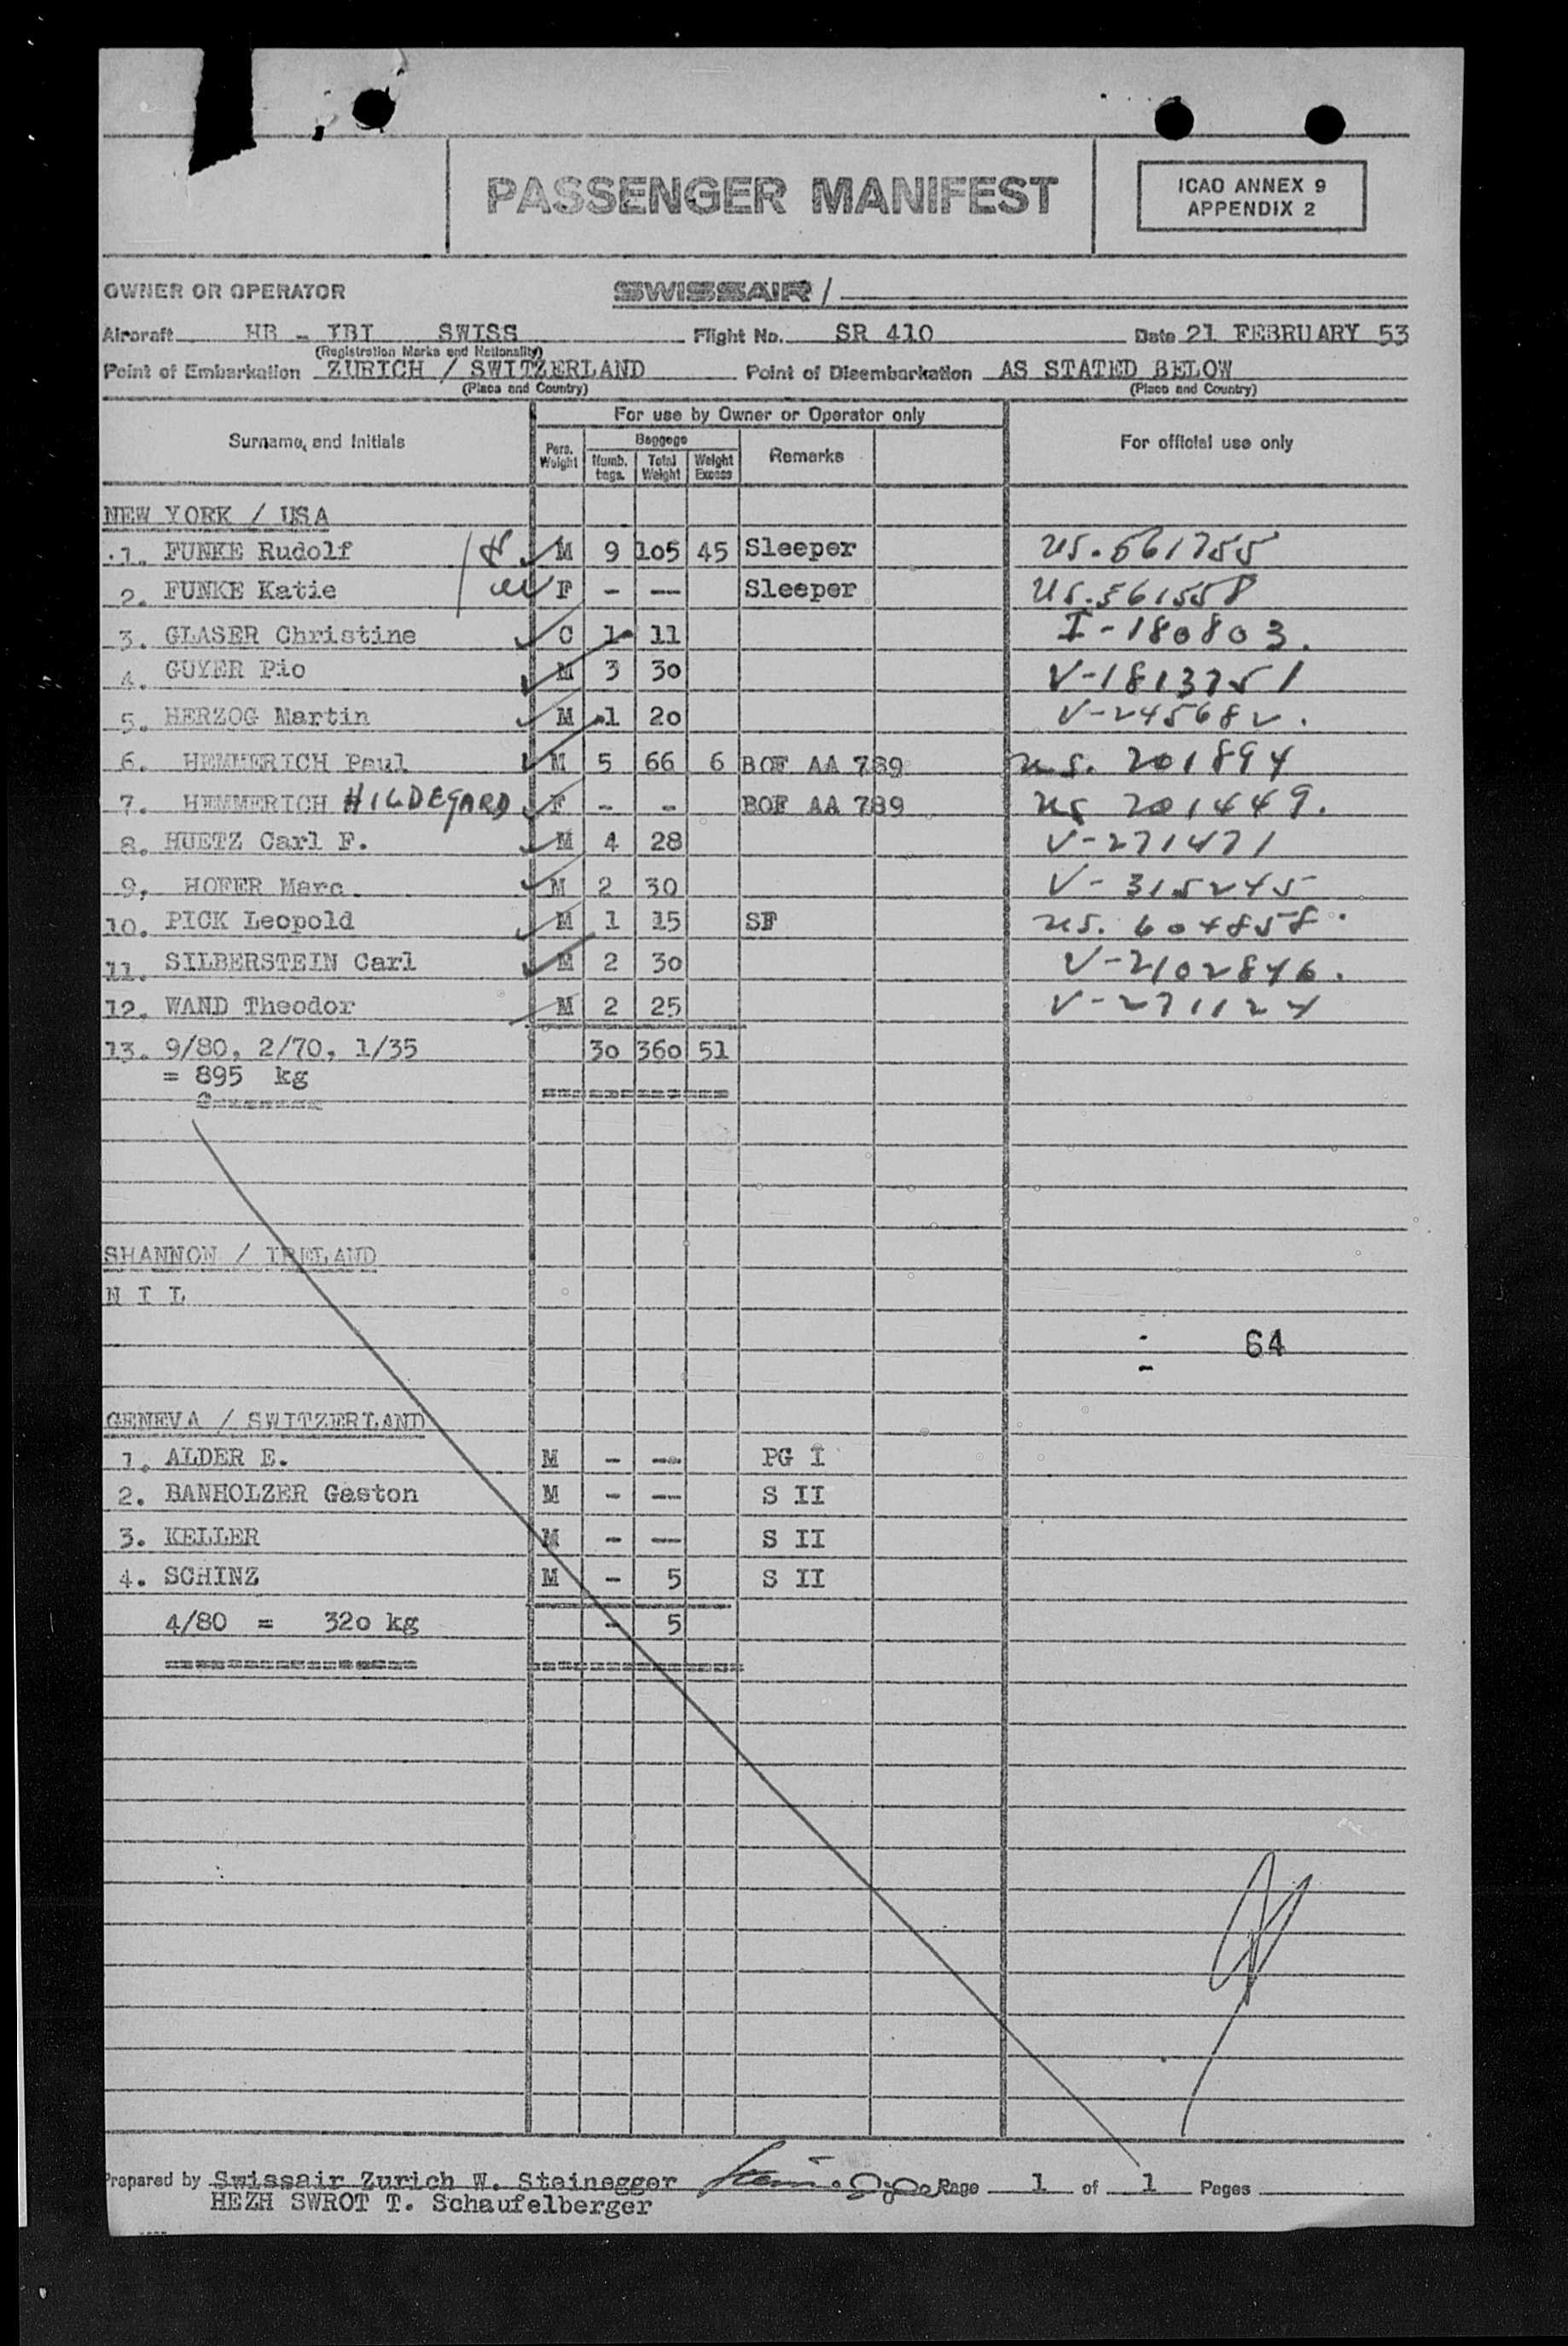 PASSENGER MANIFEST
ICAO ANNEX 9
APPENDIX 2
OWNER OR OPERATOR SWISSAIR /
Aircraft HB - IBI SWISS Flight No. SR 410 Date 21 FEBRUARY 53
(Registration Marks and Nationality)
Point of Embarkation ZURICH / SWITZERLAND Point of Disembarkation AS STATED BELOW
(Place and Country) (Place and Country)
For use by Owner or Operator only
Surname, and Initials Pers. Weight Baggage Numb. bags. Total Weight Weight Excess Remarks For official use only
NEW YORK / USA
1. FUNKE Rudolf M 9 105 45 Sleeper US. 561755
2. FUNKE Katie F - -- Sleeper US. 561558
3. GLASER Christine C 1 11 I-180803.
4. GUYER Pio M 3 30 V-1813751
5. HERZOG Martin M 1 20 V-245682.
6. HEMMERICH Paul M 5 66 6 BOF AA 789 US. 201894
7. HEMMERICH HILDEGARD F - - BOF AA 789 US 201449.
8. HUETZ Carl F. M 4 28 V-271471
9, HOFER Marc M 2 30 V-315245
10. PICK Leopold M 1 15 SF US. 604858
11. SILBERSTEIN Carl M 2 30 V-2102846.
12. WAND Theodor M 2 25 V-271124
13. 9/80, 2/70, 1/35 30 360 51
= 895 kg
SHANNON / IRELAND
N I L
64
GENEVA / SWITZERLAND
1. ALDER E. M - -- PG I
2. BANHOLZER Gaston M - -- S II
3. KELLER M - -- S II
4. SCHINZ M - 5 S II
4/80 = 320 kg - 5
Prepared by Swissair Zurich W. Steinegger Page 1 of 1 Pages
HEZH SWROT T. Schaufelberger